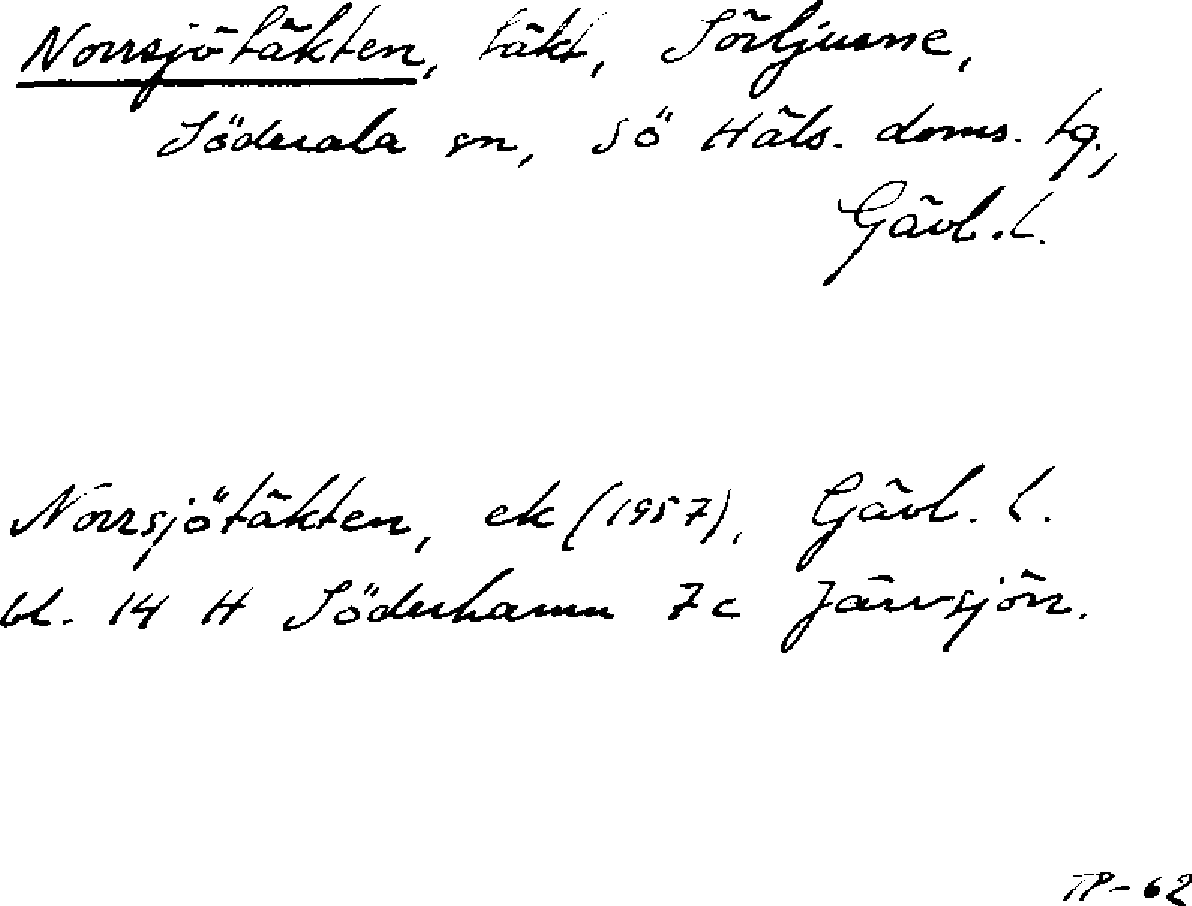 Norrsjötäkten, täkt, Sörljusne,
Söderala sn, Sö Häls. doms. tg.,
Gävl. l.
Norrsjötäkten, ek (1957), Gävl. l.
bl. 14 H Söderhamn 7c Järvsjön.
TP-62